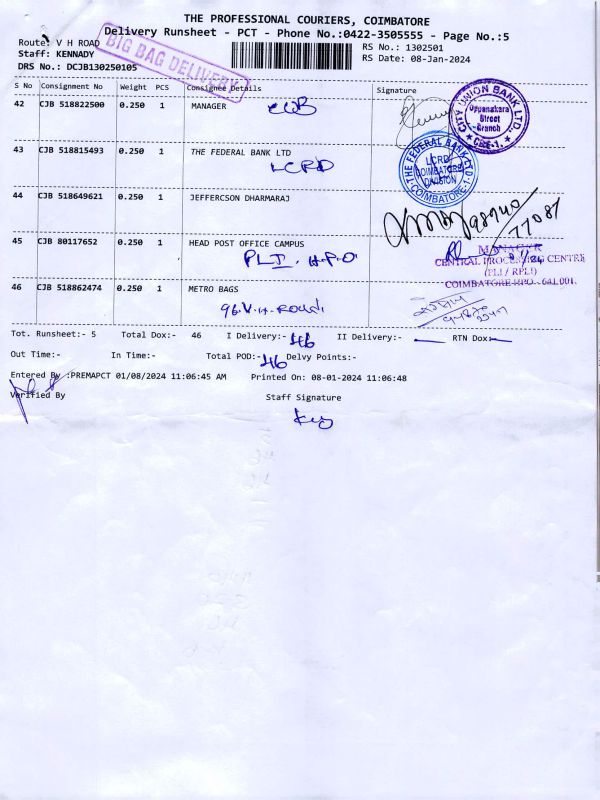 THE PROFESSIONAL COURIERS, COIMBATORE
Delivery Runsheet - PCT - Phone No.:0422-3505555 - Page No.:5
Route: V H ROAD
RS No.: 1302501
Staff: KENNADY
RS Date: 08-Jan-2024
DRS No.: DCJB130250105
BIG BAG DELIVERY
S No Consignment No Weight PCS Consignee Details Signature
42 CJB 518822500 0.250 1 MANAGER CUB
CITY UNION BANK LTD.,
Oppanakara
Street
Branch
CBE-1.
43 CJB 518815493 0.250 1 THE FEDERAL BANK LTD
LCRD
THE FEDERAL BANK LTD.
LCRD
COIMBATORE
DIVISION
COIMBATORE
44 CJB 518649621 0.250 1 JEFFERCSON DHARMARAJ
98940
77087
45 CJB 80117652 0.250 1 HEAD POST OFFICE CAMPUS
PLI. H.P.O
MANAGER
CENTRAL PROCESSING CENTRE
(PLI / RPLI)
COIMBATORE HPO - 641 001.
46 CJB 518862474 0.250 1 METRO BAGS
96. V.H. Road
Tot. Runsheet:- 5 Total Dox:- 46 I Delivery:- 46 II Delivery:- RTN Dox:-
Out Time:- In Time:- Total POD:- 46 Delvy Points:-
Entered By :PREMAPCT 01/08/2024 11:06:45 AM Printed On: 08-01-2024 11:06:48
Verified By Staff Signature